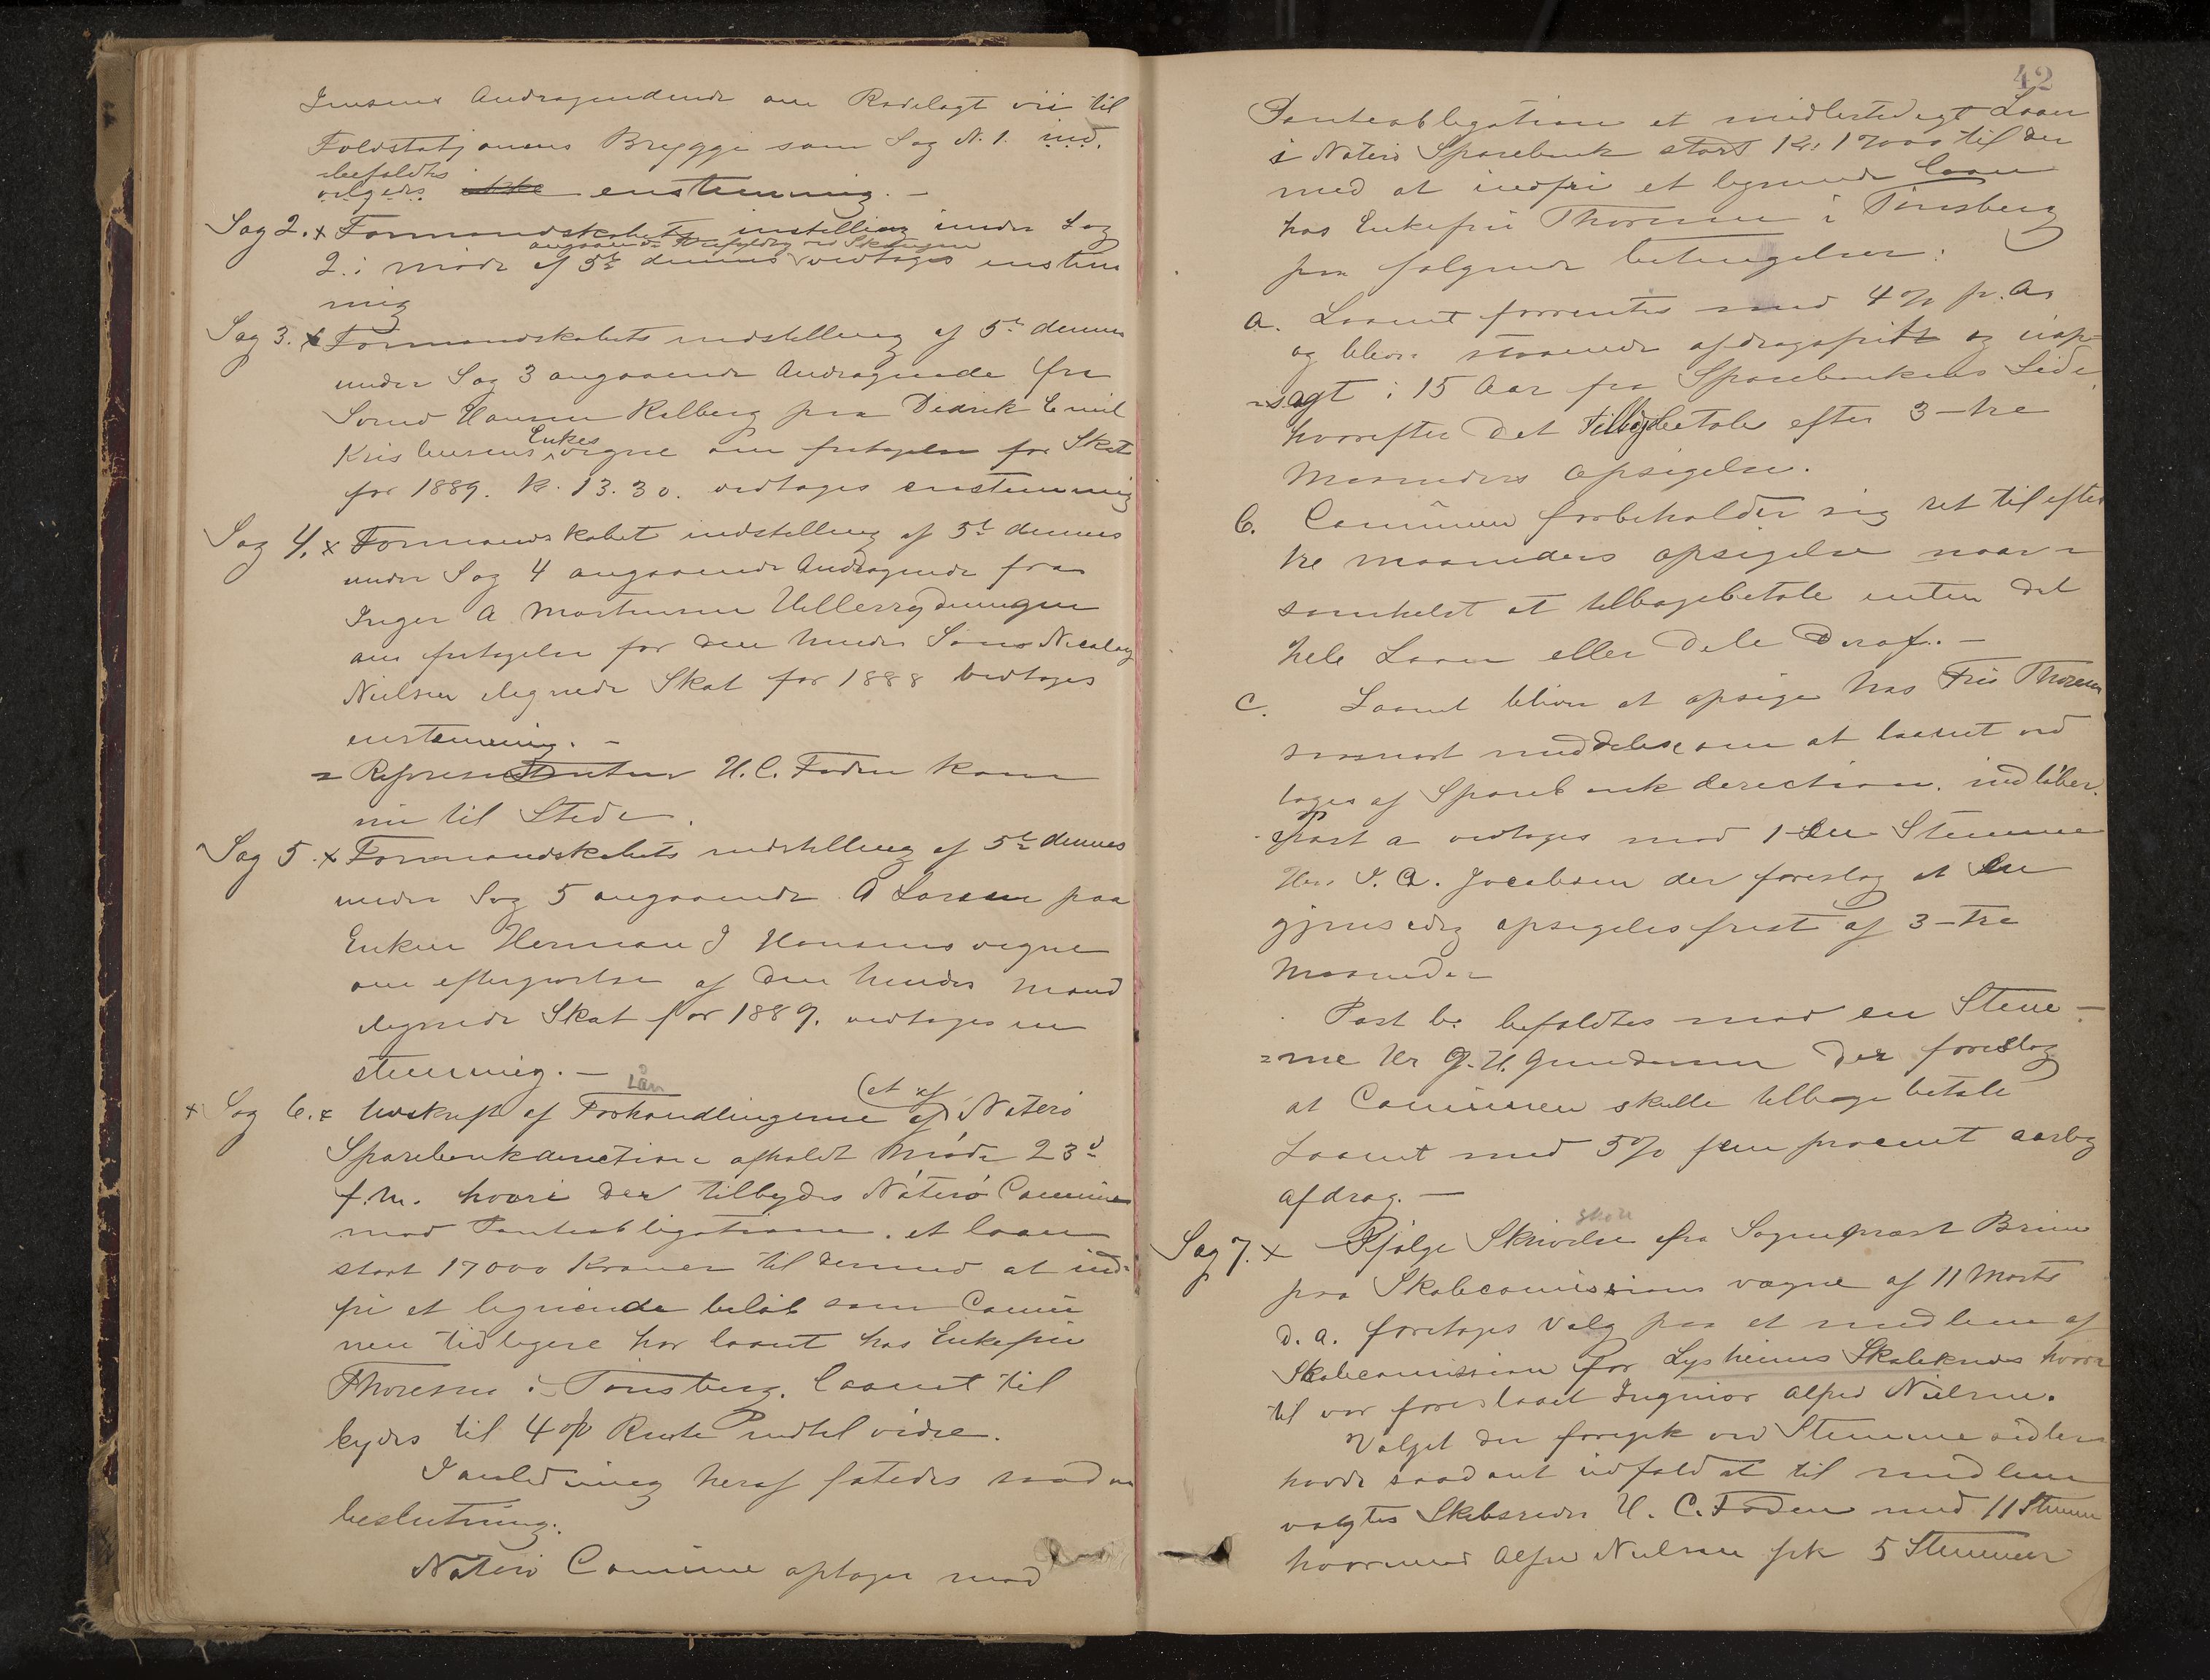 Jensens Andragendende om Rodelagt vei til
Foldstatjonens Brygge som Sag N. 1. ind.
befaldtes
velgeds. ikke enstemmig. —
Sag 2. x Formandskabets instelling under Sag
angaaende
2. i møde af 5t dennes vedtages enstem
mig
Sag 3. x Formandskabets indstilling af 5t dennes
under Sag 3 angaaende Andragende fra
Hansen Kalberg paa Didrik Emil
Enkes
Kristensens vegne om fritagelse for Skat
for 1889. k. 13.30. vedtages enstemmig
Sag 4. x Formandskabet indstilling af 5t dennes
under Sag 4 angaaende Andragende fra
Inger A Mortensen Hellerrydningen
om fritagelse for den hendes Søn Nicolay
Nielsen ilignede Skat for 1888 vedtages
enstemmig. —
= Representanten H. C. Foden kom
nu til Stede.
Sag 5. x Formandskabets indstilling af 5t dennes
under Sag 5 angaaende A Larsen paa
Enken Herman J Hansens vegne
om eftergivelse af den hendes Mand
ilignede Skat for 1889. vedtages en
stemmig. —
Lån
x Sag 6. x Udskrift af Forhandlingerne (et af af Nøterø
Sparebankdirection afholdt Møde 23d
f.M. hvori der tilbydes Nøterø Commune
mod Panteobligation. et laan
stort 17000 Kroner til dermed at ind-
fri et lignende beløb som Commu
nen tidligere har laant hos Enkefru
Thoresen i Tønsberg. Laanet til
bydes til 4 % Rente indtil vidre.
I anledning heraf fatedes saadan
beslutning.
Nøterø Commune optager mod
42
Panteobligation et midlertidigt Laan
i Nøterø Sparebank stort Kr. 17000 til der
med at indfri et lignende Laan
hos Enkefru Thoresen i Tønsberg
paa følgende betingelser:
a. Laanet forrentes med 4 % p. A.
og bliver staaende afdragsfrit og uop-
=sagt i 15 Aar fra Sparebankens Side
hvorefter det Tilbagebetales efter 3 – tre
Maaneders Opsigelse.
b. Communen forbeholder sig ret til efter
tre Maaneders opsigelse naar =
somhelst at tilbagebetale enten det
hele Laan eller Dele deraf. —
c. Laanet bliver at opsige hos Fru Thoresen
saasnart meddelse om at laanet ved
tages af Sparebankdirection. indløber.
Post a vedtages mod 1 – en Stemme
Hr. J. A. Jacobsen der foreslog at en
gjensidig opsigelsesfrist af 3 – tre
Maaneder
Post b. befaldtes mod en Stem –
=me Hr G. H. Gundersen der foreslog
at Communen skulle tilbage betale
Laanet med 5 % fem procent aarlig
afdrag. —
Skole
Sag 7. x Ifølge Skrivelse fra Sogneprest Bruun
paa Skolecomissions vægne af 11 Marts
d. a. foretages Valg paa et medlem af
Skolecomission for Lysheims Skolekreds hvor
til var foreslaaet Ingeniør Alfred Nielsen.
Valget der foregik ved Stemmesedler
havde saadant udfald at til medlem
valgtes Skibsreder H. C. Foden med 11 Stemmer
hvorimod Alfred Nielsen fik 5 Stemmer